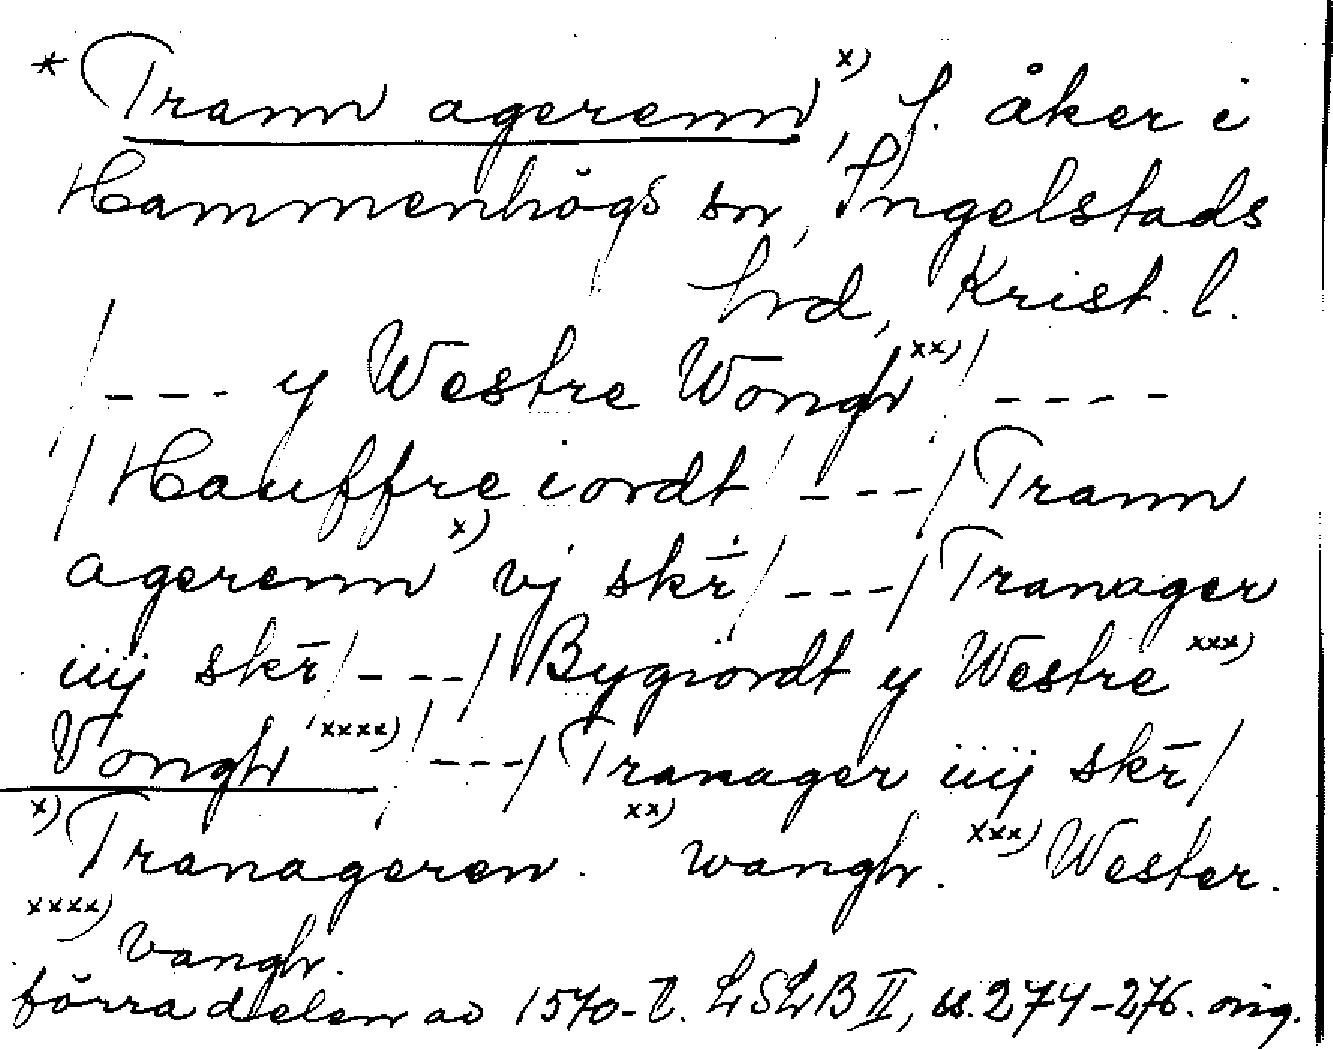 * Trann agerenn x), f. åker i
Hammenhögs sn, Ingelstads
hrd, Krist. l.
/--- y Westre Wongh xx)/----
/Hauffre iordt/---/Trann
agerenn x) vj skr̄/---/Tranager
iiij skr̄/---/Bygiordt y Westre xxx)
Vongh xxxx)/---/Tranager iiij skr̄/
x) Tranageren. xx) wangh. xxx) Wester.
xxxx) vangh.
förra delen av 1570-t. LSLB II, ss. 274-276. orig.